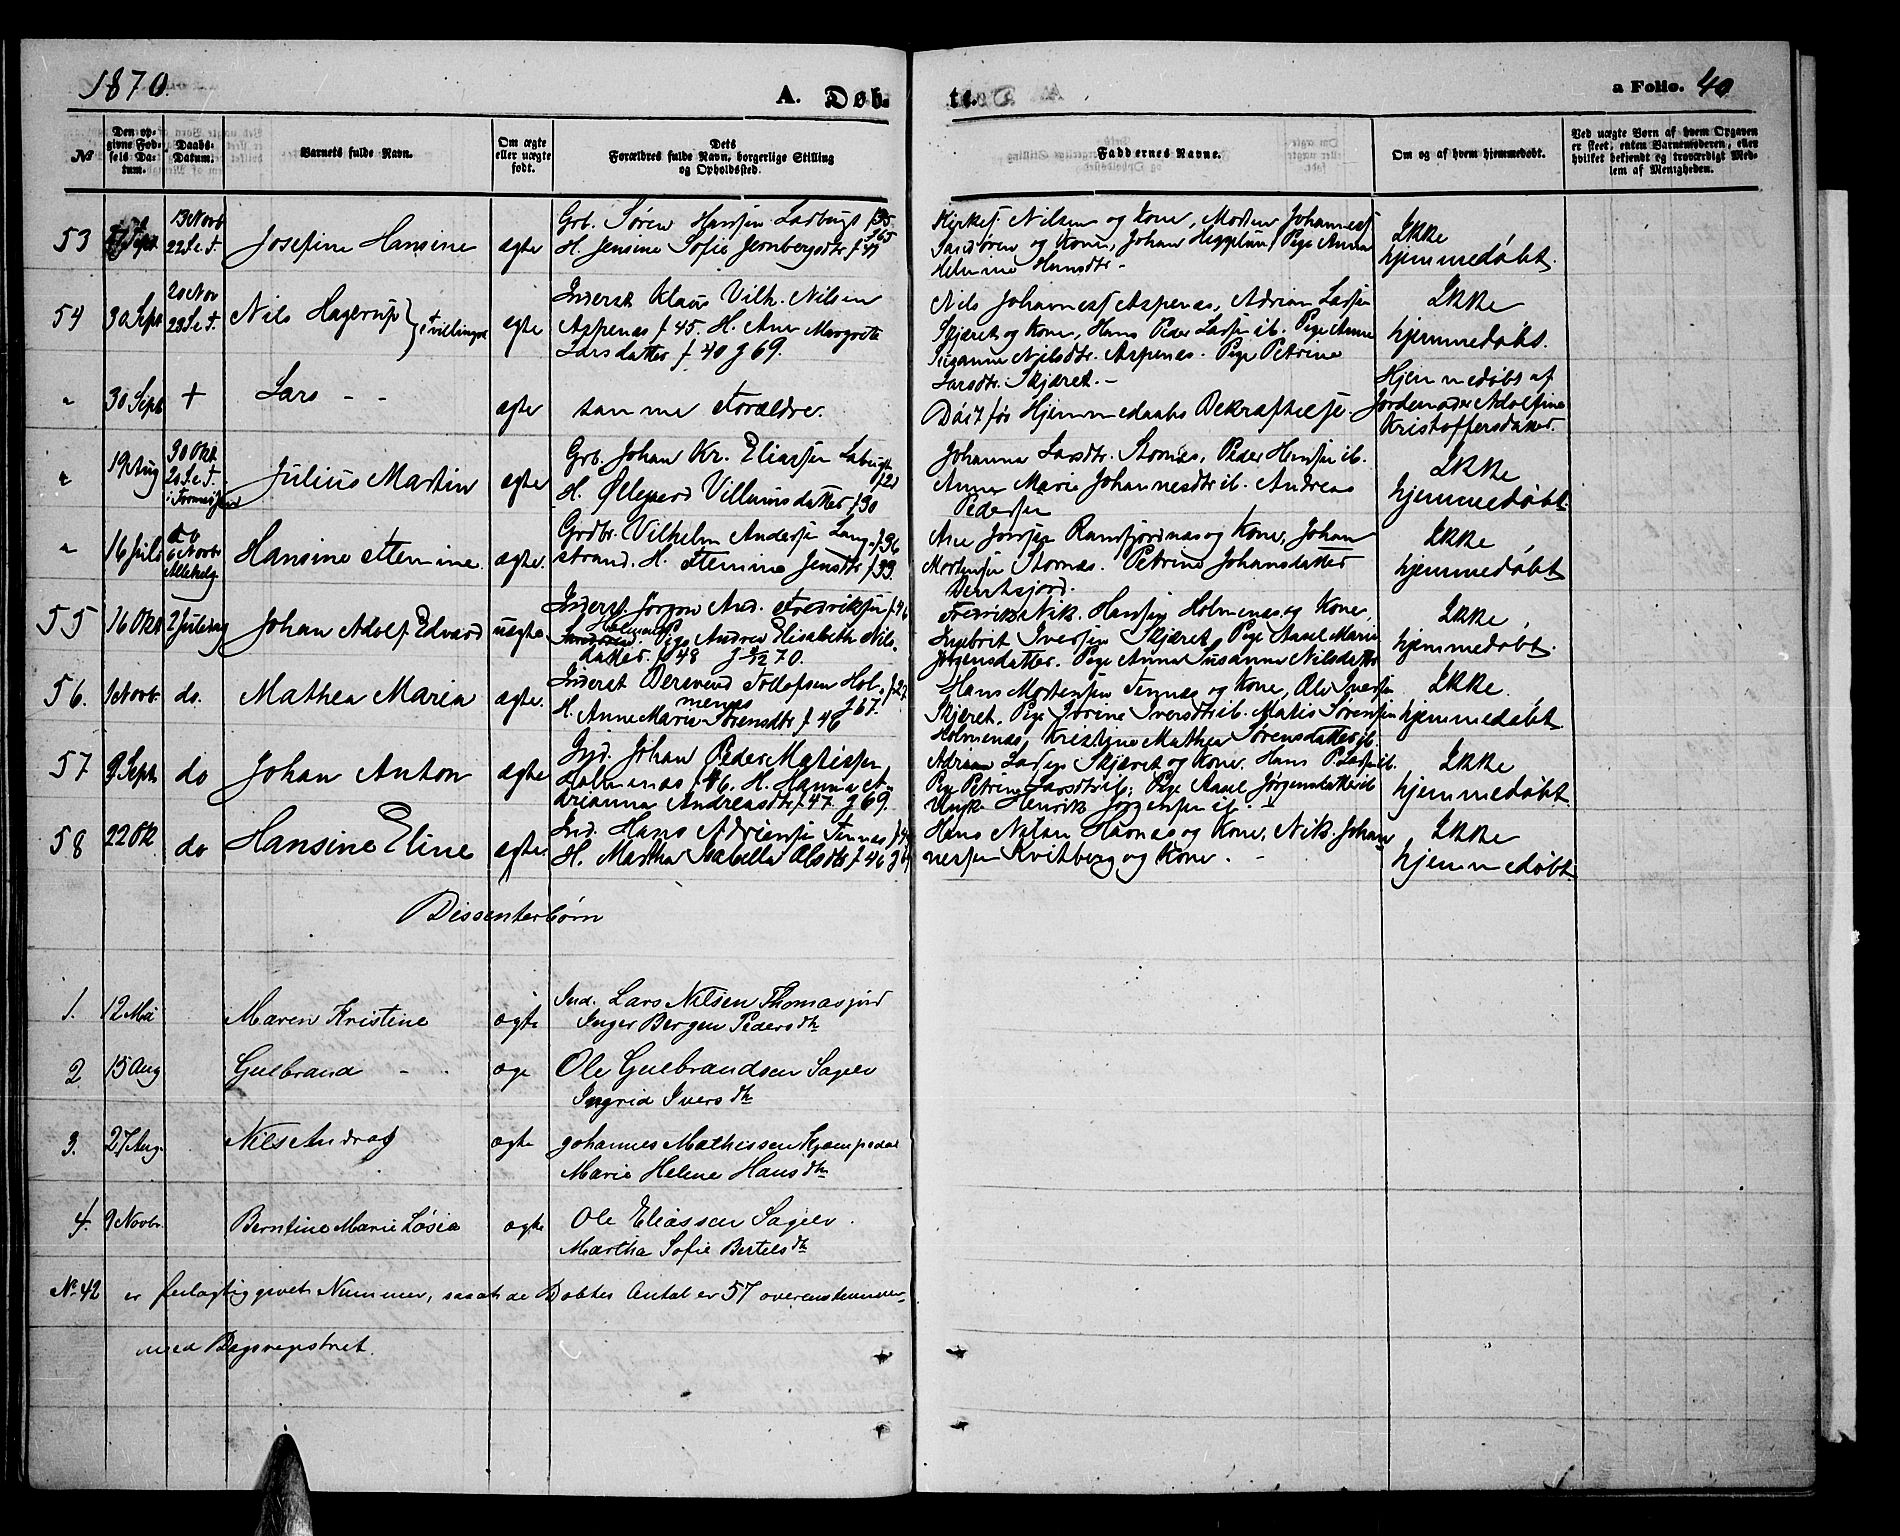 1870.
A. Døb-
te.
a Folio. 40
№
Den op-
givne Fød-
sels Da-
tum.
Daabs-
Datum.
Barnets fulde Navn.
Om ægte
eller uægte
født.
Dets
Forældres fulde Navn, borgerlige Stilling
og Opholdssted.
Faddernes Navne.
Om og af hvem hjemmedøbt.
Ved uægte Børn af hvem Opgaven
er skeet, enten Barnemoderen, eller
hvilket bekjendt og troværdigt Med-
lem af Menigheden.
53
Sept.
13 Novb
22 S. e. T.
Josefine Hansine
ægte
Grb. Søren Hansen
H. Jensine Sofie
Nilsen og Kone, Morten Johannes
og Kone, Johan Pige Anna
Hansdtr.
Ikke
hjemmedøbt.
54
30 Sept
20 Nov
23 S. e. T.
Nils Hagerup } tvillinger
ægte
Inderst Klaus Vilh. Nilsen
Aspenæs f 45. H. Ane Margrete
Larsdatter f 40 g 69.
Nils Johannes Aspenæs, Adrian Larsen
Skjæret og Kone, Hans Peder Larsen ib. Pige Anne
Susanne Nilsdtr. Aspenæs. Pige Petrine
Larsdtr. Skjæret. -
Ikke
hjemmedøbt.
"
30 Sept
+
Lars - -
ægte
samme Forældre.
Død før Hjemmedaabs Bekræftelse
Hjemmedøbt af
Jordemoder Adolfine
Kristoffersdatter.
"
19 Aug
30 Okt
20 S. e. T.
Julius Martin
ægte
Grb. Johan Kr. Eliassen
H. Øllegaard Villumsdatter f 30
Johanna Larsdtr. Stornæs, Peder Hansen ib.
Anne Marie Johannesdtr ib. Andreas
Pedersen
Ikke
hjemmedøbt.
"
16 Juli
6 Novbr
Allehelg
Hansine Hemine
ægte.
Grdbr. Vilhelm Andersen Lang-
strand. H. Hemine Jensdtr f 33.
Ramfjordnæs og Kone, Johan
Mortensen Stornæs. Petrine Johansdatter
Ikke
hjemmedøbt
55
16 Okt
2 Juledag
Johan Adolf Edvard
uægte
Inderst Jørgen And. Fredriksen
Holmenæs Pige Andrea Elisabeth Nils-
datter f 48
Fredrik Nik. Hansen Holmenæs og Kone,
Ingebrit Iversen Skjæret, Pige Aasel Marie
Jørgensdatter. Pige Anna Susanna Nilsdatter
Ikke
hjemmedøbt.
56.
1 Novbr.
do.
Mathea Maria
ægte.
Inderst Berevend Tollofsen Hol-
menæs
H. Anne Marie Sørensdtr f 46 g 67.
Hans Mortensen Tennæs og Kone, Ole Iversen
Skjæret. Pige Jorine Iversdtr ib. Matis Sørensen
Holmenæs, Kristine Mathea Sørensdatter ib.
Ikke
hjemmedøbt
57
9 Sept
do
Johan Anton
ægte
Ind. Johan Peder Matissen
Holmenæs f 46. H. Hanna A-
drianna Andreasdtr f 47. g 69.
Adrian Larsen Skjæret og Kone, Hans P. Larsen ib.
Pige Petrine Larsdtr ib. Pige Aasel Jørgensdatter ib
Ungk. Henrik Jørgensen ib.
Ikke
hjemmedøbt.
58
22 Ok.
do
Hansine Eline
ægte.
Ind. Hans Adriansen Tennæs
H. Martha Isabella Olsdtr f 46
Hans Havnæs og Kone, Nik. Johan-
nesen Kvitberg og Kone. -
Ikke
hjemmedøbt.
Dissenterbørn
1.
12 Mai
Maren Kristine
ægte
Ind. Lars Nilsen Thomasjord
Inger Bergen Pedersdtr
2
15 Aug
Gulbrand - -
æge
Ole Gulbrandsen Sagelv
Ingrid Iversdtr
3.
27 Aug.
Nils Andreas
ægte
Johannes Mathissen
Marie Helene Hansdtr
4.
9 Novbr.
Berntine Marie
ægte
Ole Eliassen Sagelv.
Martha Sofie Bertelsdtr
No. 42 er feilagtig givet Nummer, saa at de Døbtes Antal er 57 overensstemmer-
med Dagsregistret.